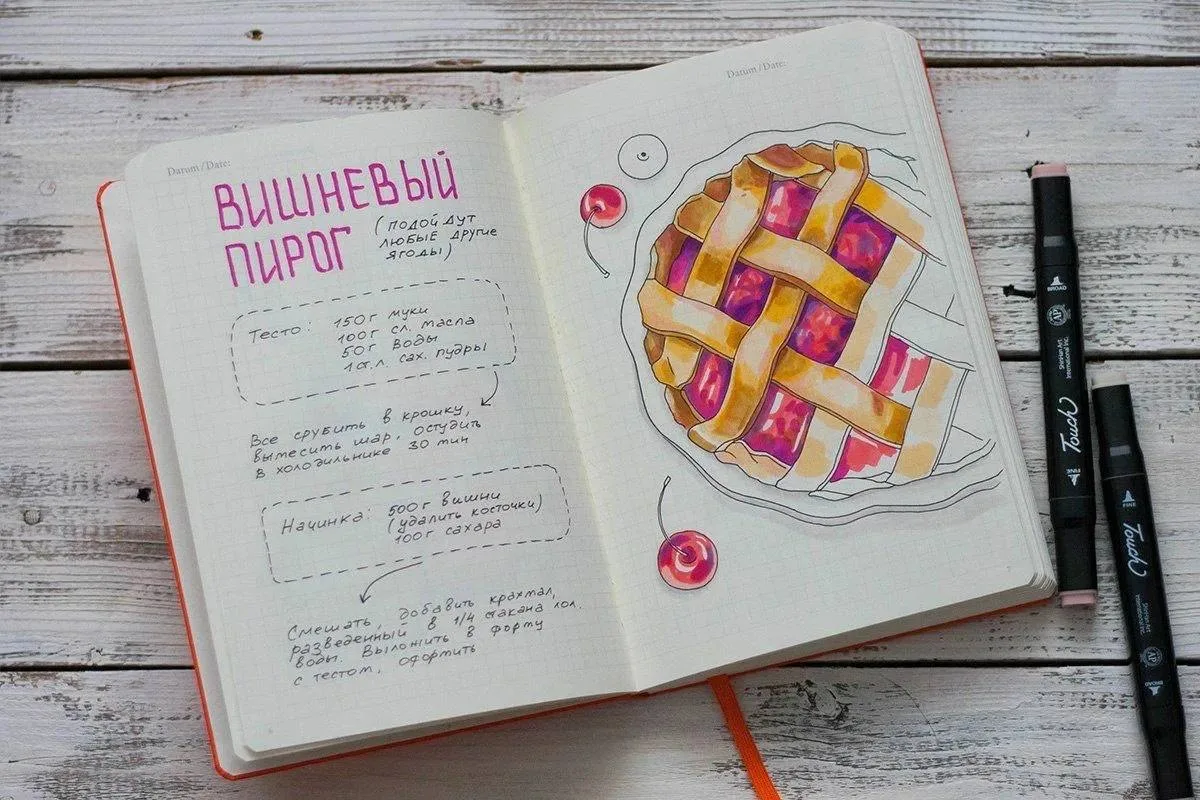 Datum / Date:
ВИШНЕВЫЙ
ПИРОГ
(ПОДОЙДУТ
ЛЮБЫЕ ДРУГИЕ
ЯГОДЫ)
Тесто: 150 г муки
100 г сл. масла
50 г воды
1 ст.л. сах. пудры
Все срубить в крошку,
вымесить шар, остудить
в холодильнике 30 мин
Начинка: 500 г вишни
(удалить косточки)
100 г сахара
Смешать, добавить крахмал,
разведенный в 1/4 стакана хол.
воды. Выложить в форму
с тестом, оформить
Datum / Date:
BROAD
AP
ShinHan Art
International Inc.
Touch
FINE
FINE
Touch
ShinHan Art
International Inc.
AP
BROAD